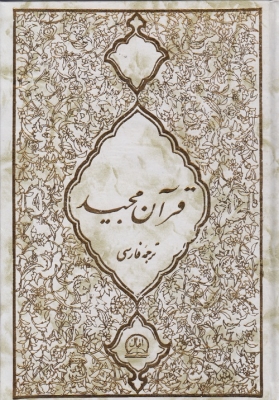 قرآن مجید
ترجمهٔ فارسی